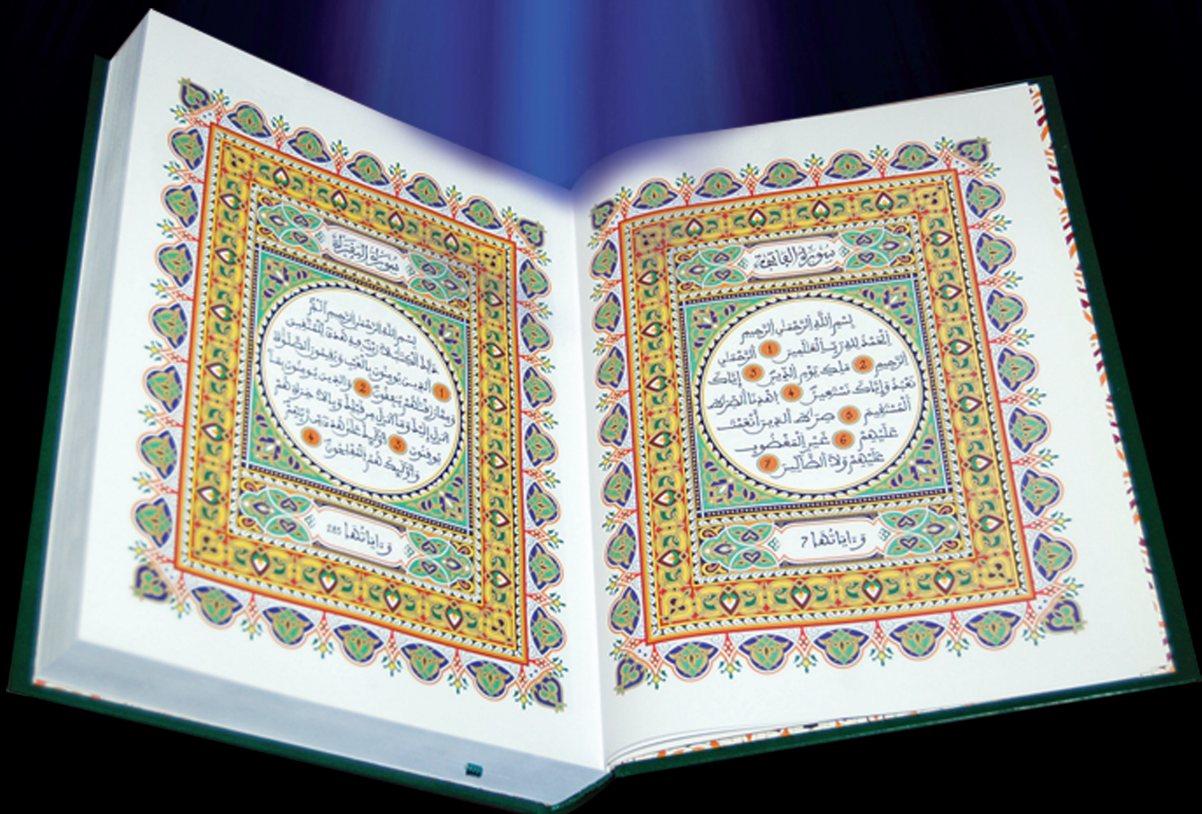 سورة الفاتحة
بِسْمِ اللَّهِ الرَّحْمَٰنِ الرَّحِيمِ
الْحَمْدُ لِلَّهِ رَبِّ الْعَٰلَمِينَ 1 الرَّحْمَٰنِ
الرَّحِيمِ 2 مَلِكِ يَوْمِ الدِّينِ 3 إِيَّاكَ
نَعْبُدُ وَإِيَّاكَ نَسْتَعِينُ 4 اهْدِنَا الصِّرَٰطَ
الْمُسْتَقِيمَ 5 صِرَٰطَ الَّذِينَ أَنْعَمْتَ
عَلَيْهِمْ 6 غَيْرِ الْمَغْضُوبِ
عَلَيْهِمْ وَلَا الضَّالِّينَ 7
وَءَايَاتُهَا 7
سورة البقرة
بِسْمِ اللَّهِ الرَّحْمَٰنِ الرَّحِيمِ أَلَمِّ
ذَٰلِكَ الْكِتَٰبُ لَا رَيْبَ فِيهِ هُدًى لِّلْمُتَّقِينَ
1 الَّذِينَ يُومِنُونَ بِالْغَيْبِ وَيُقِيمُونَ الصَّلَوٰةَ
وَمِمَّا رَزَقْنَٰهُمْ يُنفِقُونَ 2 وَالَّذِينَ يُومِنُونَ بِمَا
أُنزِلَ إِلَيْكَ وَمَا أُنزِلَ مِن قَبْلِكَ وَبِالَاخِرَةِ هُمْ
يُوقِنُونَ 3 أُوْلَٰئِكَ عَلَىٰ هُدًى مِّن رَّبِّهِمْ
وَأُوْلَٰئِكَ هُمُ الْمُفْلِحُونَ 4
وَءَايَاتُهَا 285